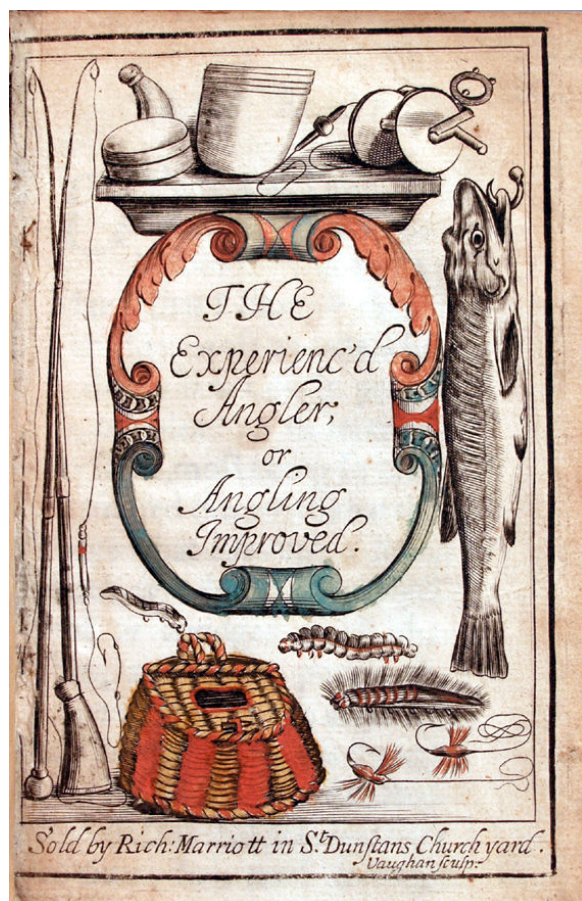 THE
Experienc'd
Angler;
or
Angling
Improved.
Sold by Rich: Marriott in St. Dunſtans Church yard.
Vaughan ſculp: